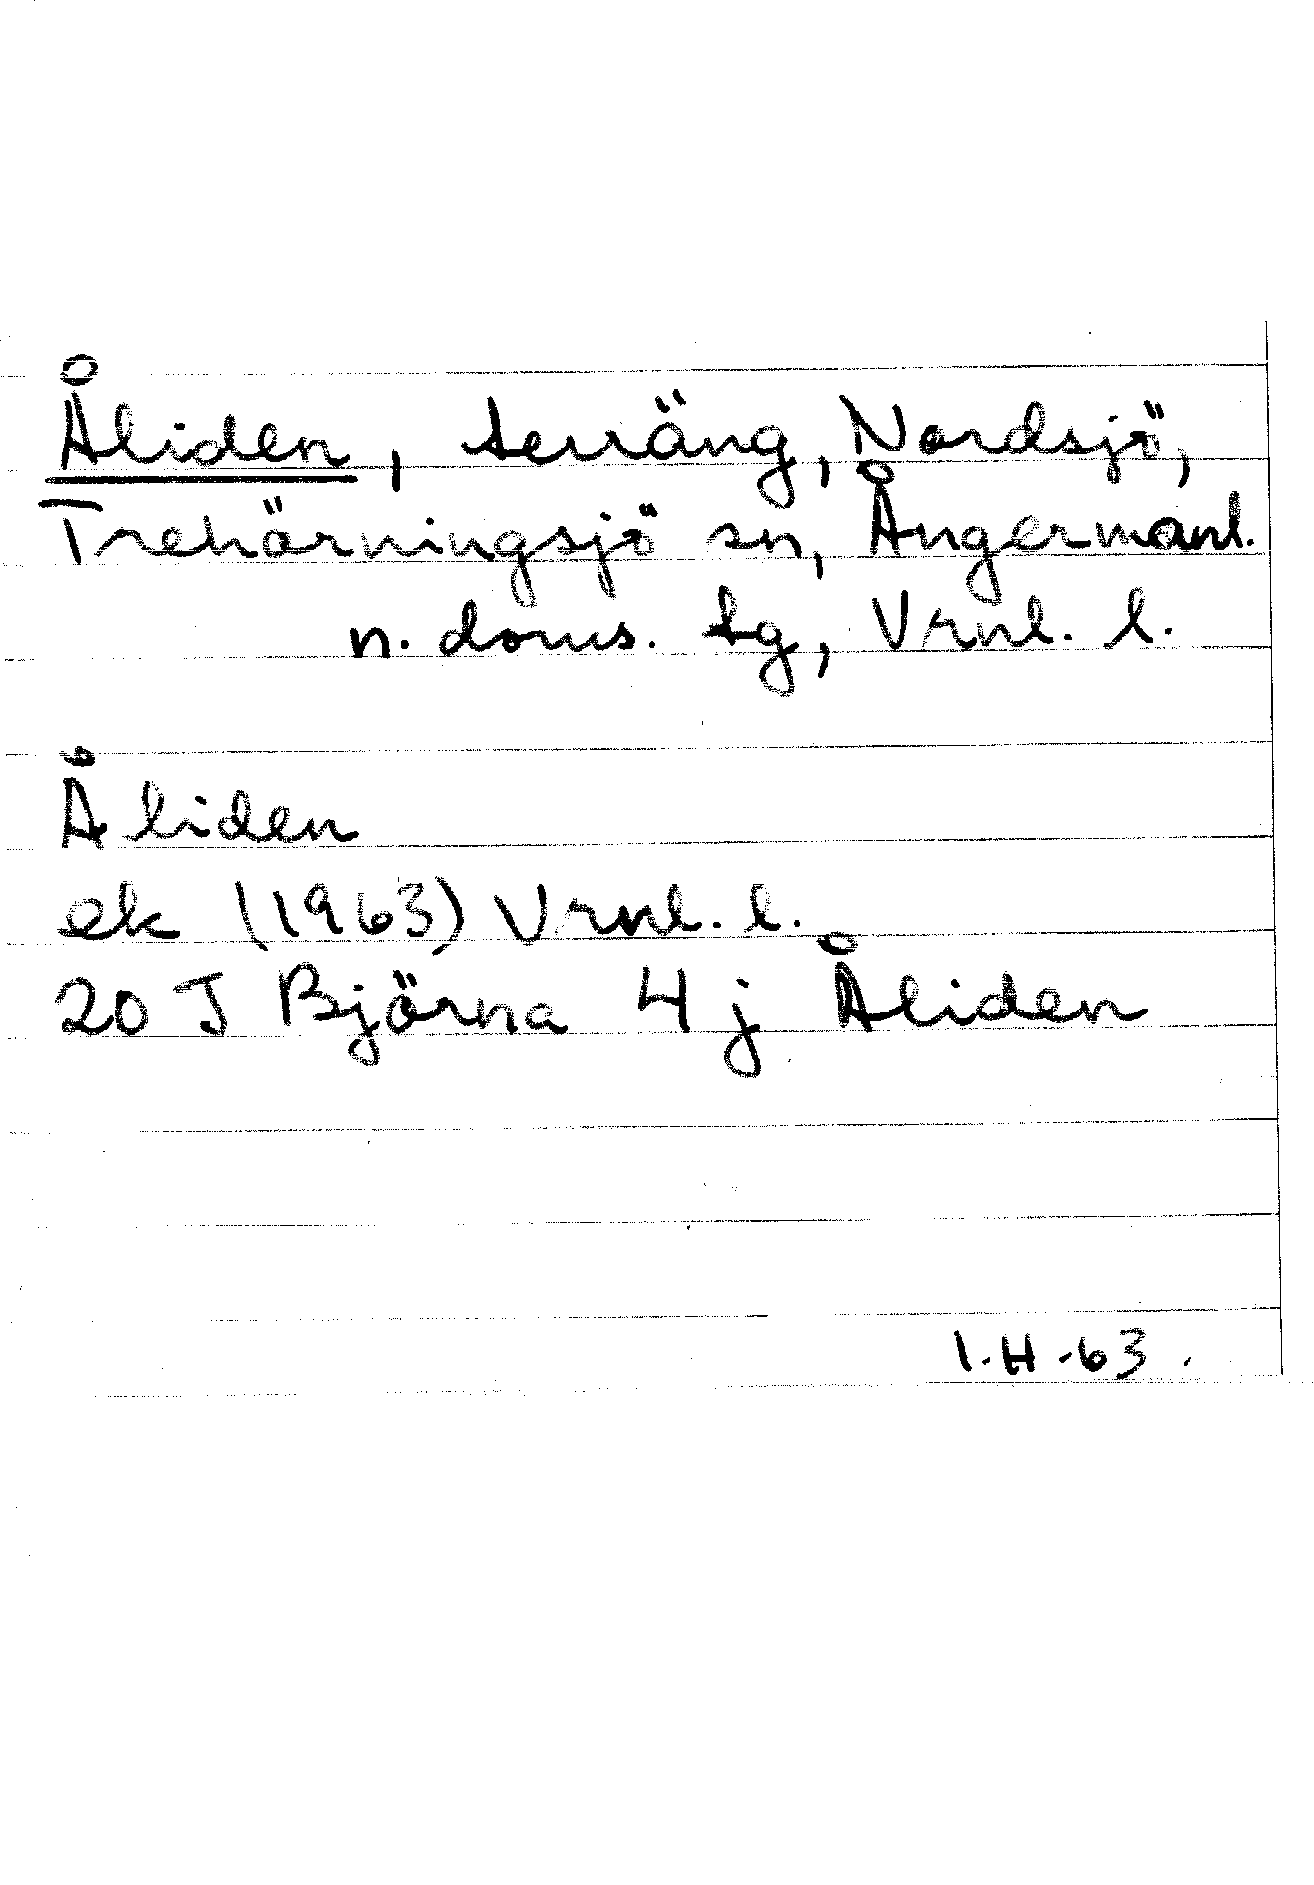 Åliden, terräng, Nordsjö,
Trehörningsjö sn, Ångermanl.
n. doms. tg, Vrnl. l.
Åliden
ek (1963) Vrnl. l.
20 J Björna 4 j Åliden
I.H-63.